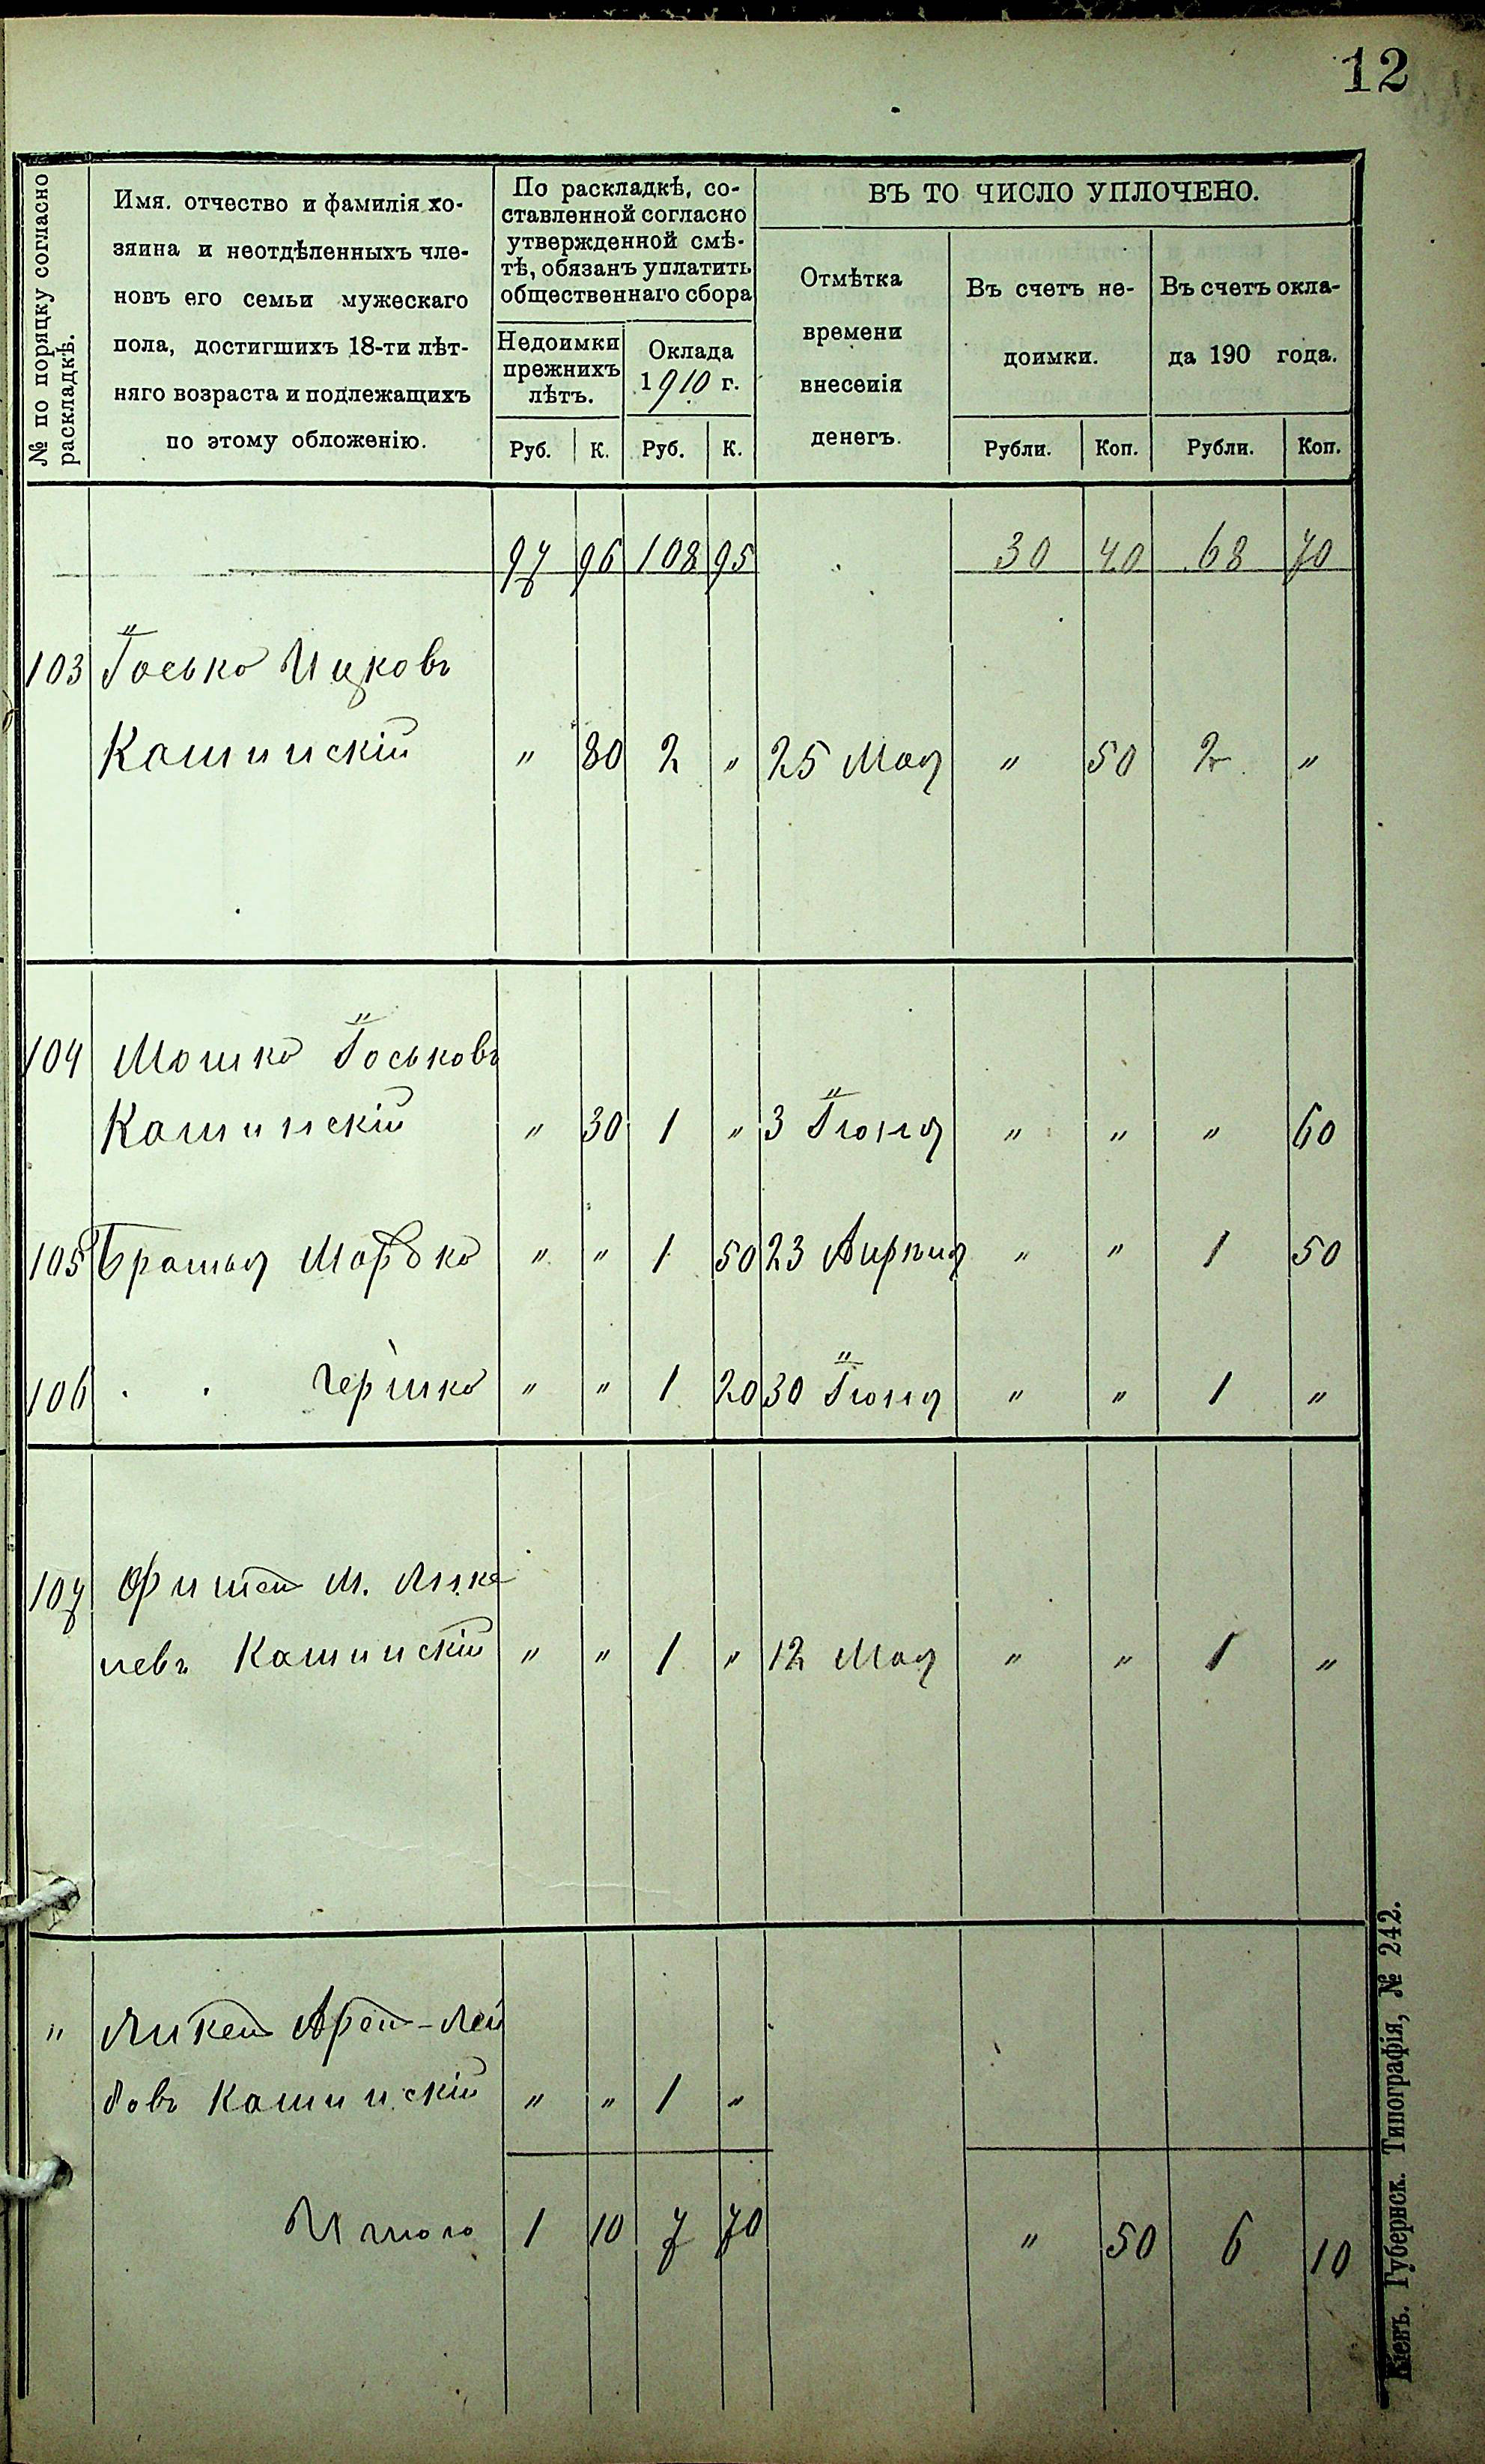 12
№ по поряцку согласно
раскладкѣ.
Имя. отчество и фамилія хо-
зяина и неотдѣленныхъ чле-
новъ его семьи мужескаго
пола, достигшихъ 18-ти лѣт-
няго возраста и подлежащихъ
по этому обложенію.
По раскладкѣ, со-
ставленной согласно
утвержденной смѣ-
тѣ, обязанъ уплатить
общественнаго сбора
Недоимки
прежнихъ
лѣтъ.
Оклада
1910 г.
Руб. К. Руб. К.
ВЪ ТО ЧИСЛО УПЛОЧЕНО.
Отмѣтка
времени
внесенія
денегъ.
Въ счетъ не-
доимки.
Въ счетъ окла-
да 190 года.
Рубли. Коп. Рубли. Коп.
97 96 108 95 30 40 68 70
103 Іосько Ицковъ
Кашинскій " 80 2 " 25 Мая " 50 2 "
104 Мошко Іоськовъ
Кашинскій " 30 1 " 3 Іюня " " " 60
105 Братья Мордко " " 1 50 23 Априля " " 1 50
106 Гершко " " 1 20 30 Іюня " " 1 "
107 М.
Кашинскій " " 1 " 12 Мая " " 1 "
" Арон-Лей
бовъ Кашинскій " " 1 "
Итого 1 10 7 70 " 50 6 10
Кіевъ. Губернск. Типографія, № 242.